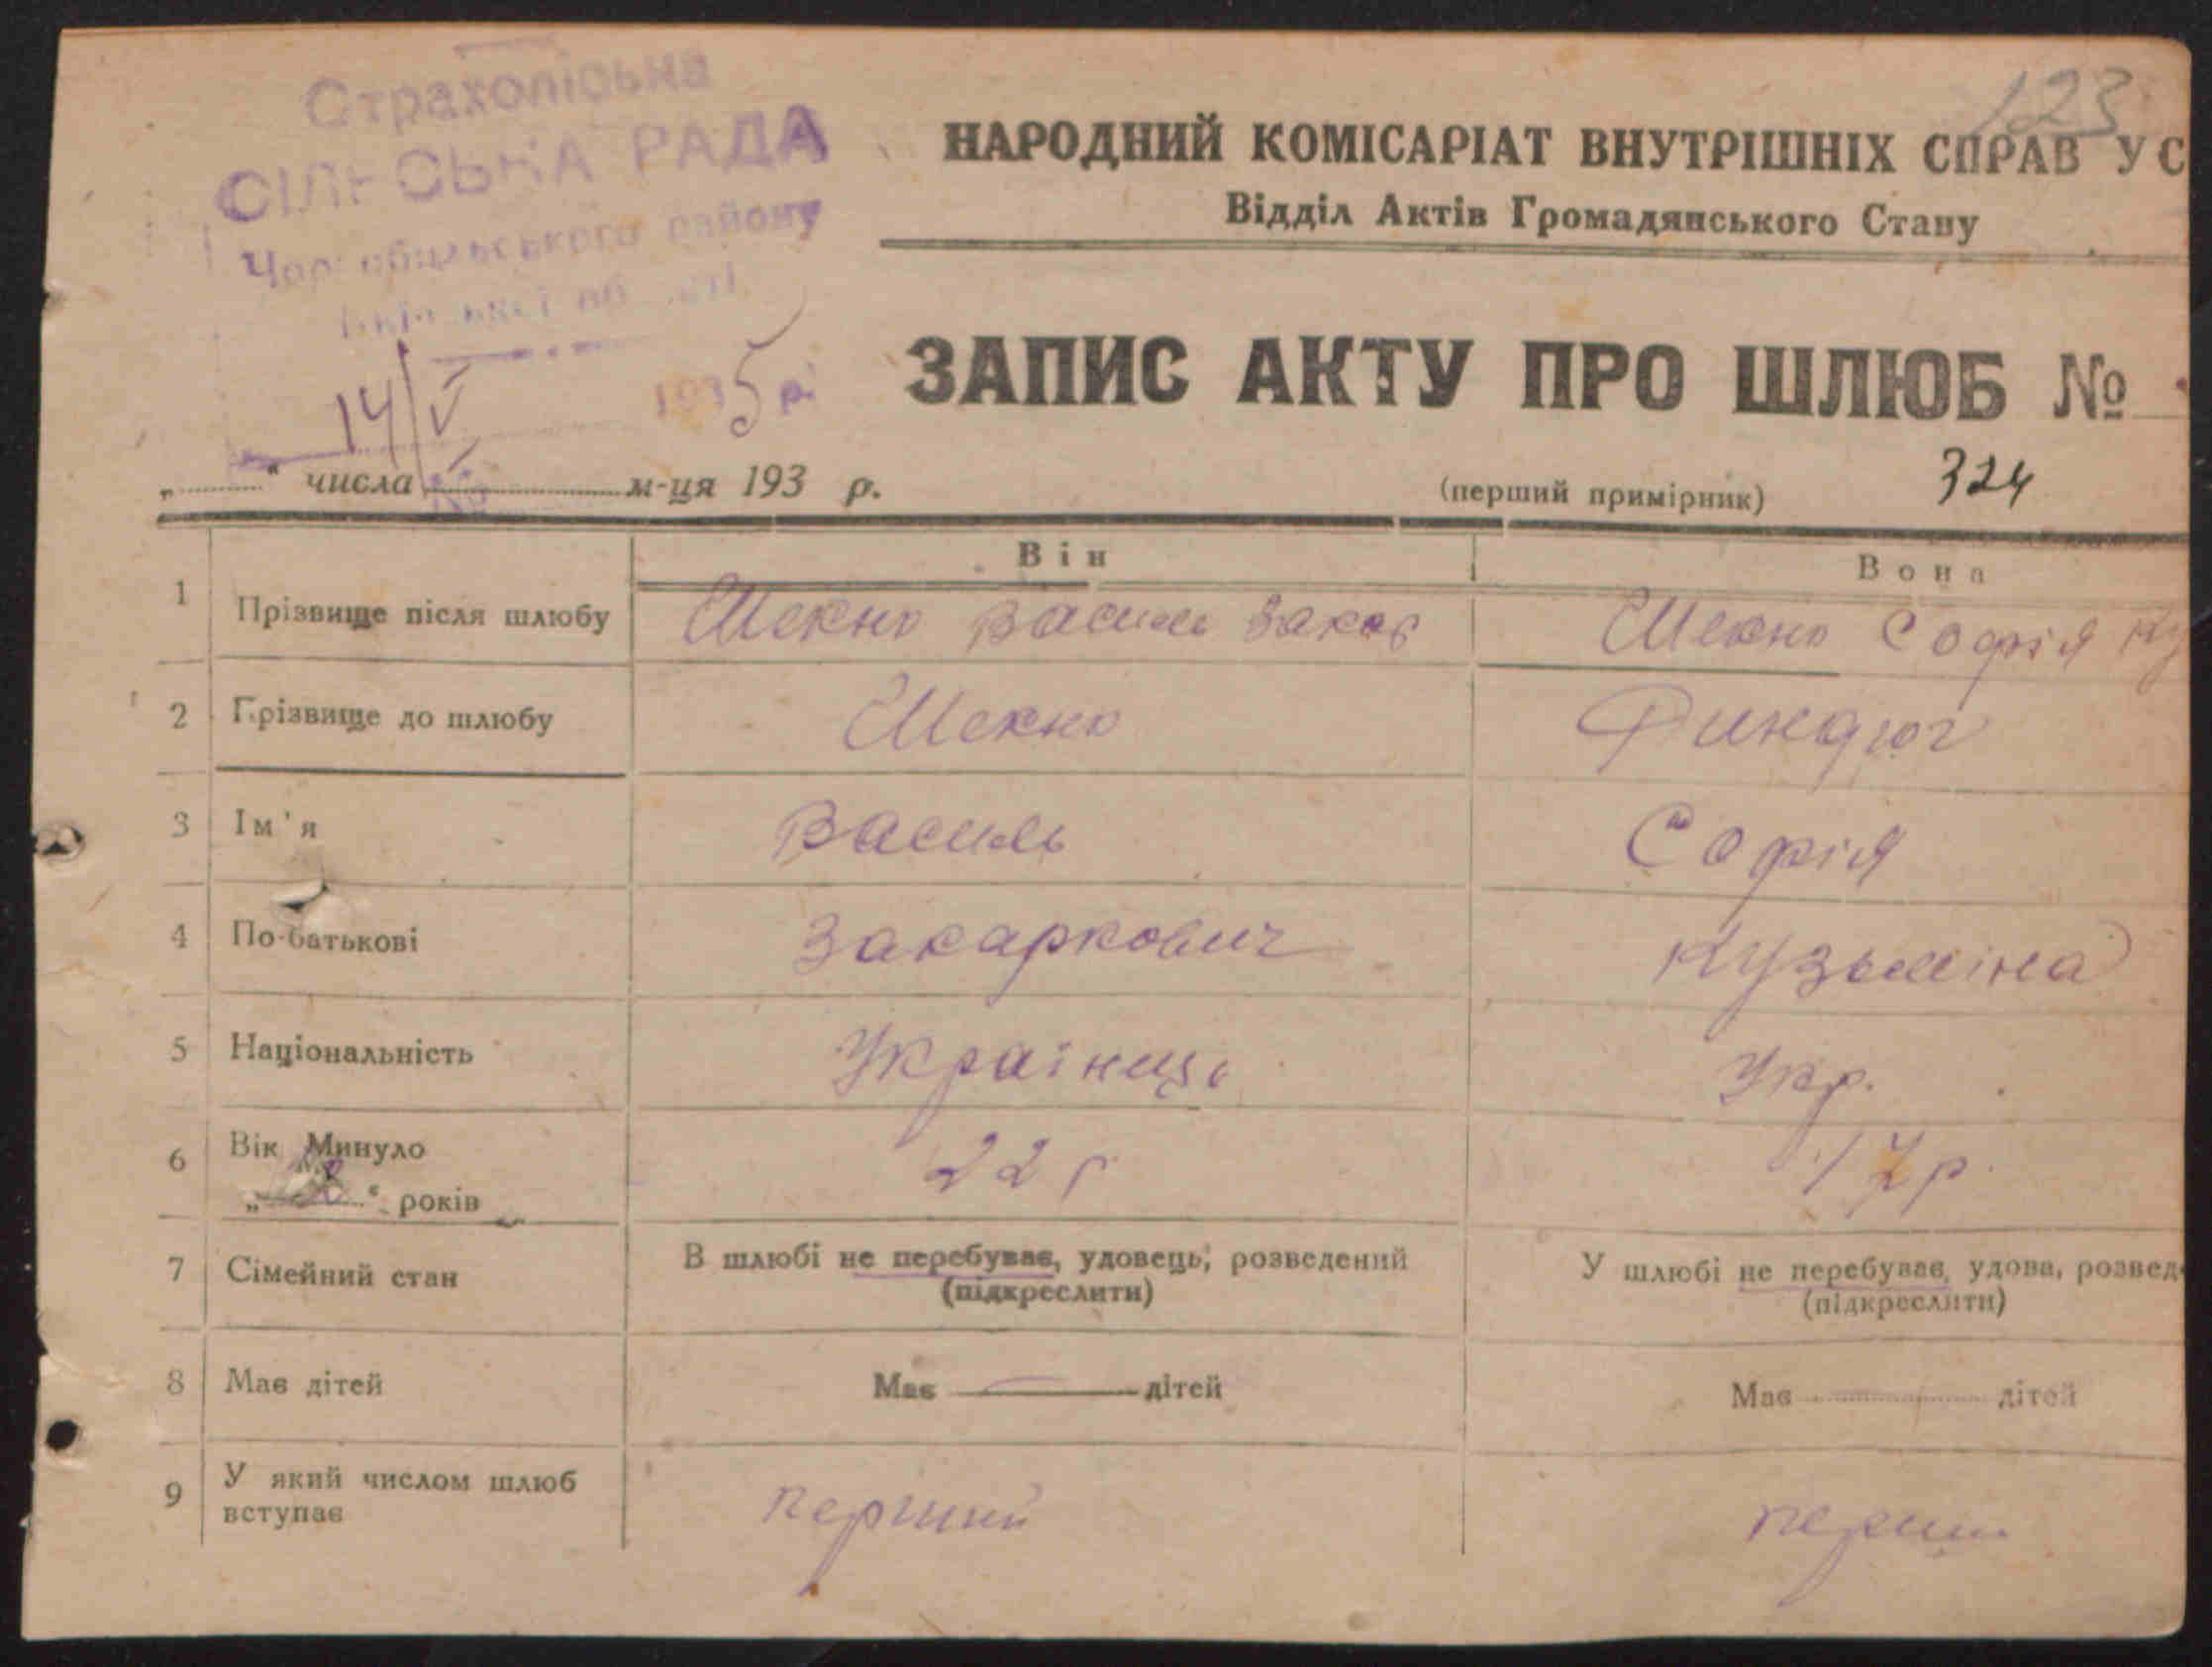 123
Страхоліська
СІЛЬСЬКА РАДА
Чорнобильського району
14/V 1935 р.
НАРОДНИЙ КОМІСАРІАТ ВНУТРІШНІХ СПРАВ УС
Відділ Актів Громадянського Стану
ЗАПИС АКТУ ПРО ШЛЮБ №
„ “ числа м-ця 193 р.
(перший примірник) 324
Він Вона
1 Прізвище після шлюбу Шекно Василь Закар Шекно Софія Ку
2 Прізвище до шлюбу Шекно
3 Ім'я Василь Софія
4 По-батькові Закаркович Кузьміна
5 Національність Українець Укр.
6 Вік Минуло 22 р 17 р.
„ “ років
7 Сімейний стан В шлюбі не перебуває, удовець, розведений У шлюбі не перебуває, удова, розвед
(підкреслити) (підкреслити)
8 Має дітей Має — дітей Має дітей
9 У який числом шлюб вступає перший перш